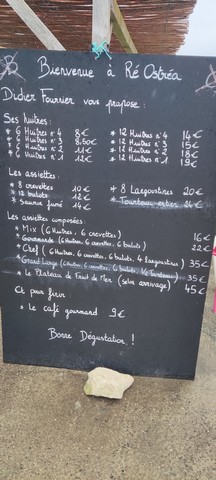 Bienvenue à Ré Ostréa
Didier Fournier vous propose :
Ses huîtres :
* 6 Huîtres n°4 8€ * 12 Huîtres n°4 14€
* 6 Huîtres n°3 8.50€ * 12 Huîtres n°3 15€
* 6 Huîtres n°2 11€ * 12 Huîtres n°2 18€
* 6 Huîtres n°1 12€ * 12 Huîtres n°1 19€
Les assiettes :
* 8 crevettes 10€ * 8 Langoustines 20€
* 12 bulots 12€ * Tourteau entier 24€
* Saumon fumé 14€
Les assiettes composées :
* Mix (6 Huîtres, 6 crevettes) 16€
* Gourmande (6 Huîtres, 6 crevettes, 6 bulots) 22€
* Chef (6 Huîtres, 6 crevettes, 6 bulots, 4 langoustines) 35€
* Grand Large (6 Huîtres, 6 crevettes, 6 bulots, ½ Tourteau) 35€
* Le Plateau de Fruit de Mer (selon arrivage) 45€
Et pour finir
* Le café gourmand 9€
Bonne Dégustation !